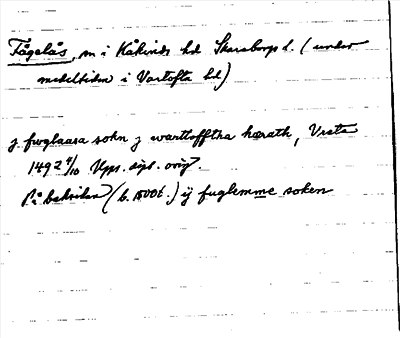 Fågelås, sn i Kåkinds hd Skaraborgs l. (under
medeltiden i Vartofta hd)
j fwglaasa sokn j wartlofftha hærath, Vrsta
1492 4/10 Upps. dipl. orig.
På baksidan (b. 1500t.) ij fuglemme soken